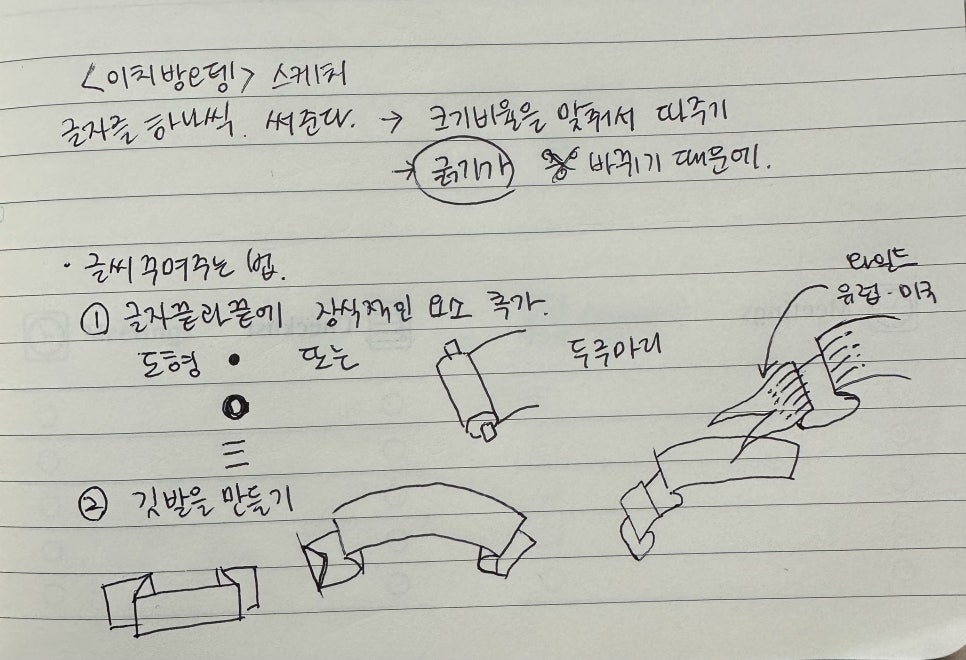 <이치방e뎅> 스케치
글자를 하나씩. 써준다. → 크기비율을 맞춰서 따주기
→ 굵기가 바뀌기 때문에.
· 글씨 꾸며주는 법.
① 글자끝과끝에 장식적인 요소 추가.
도형 또는 두루마리
유럽·미국
② 깃발을 만들기